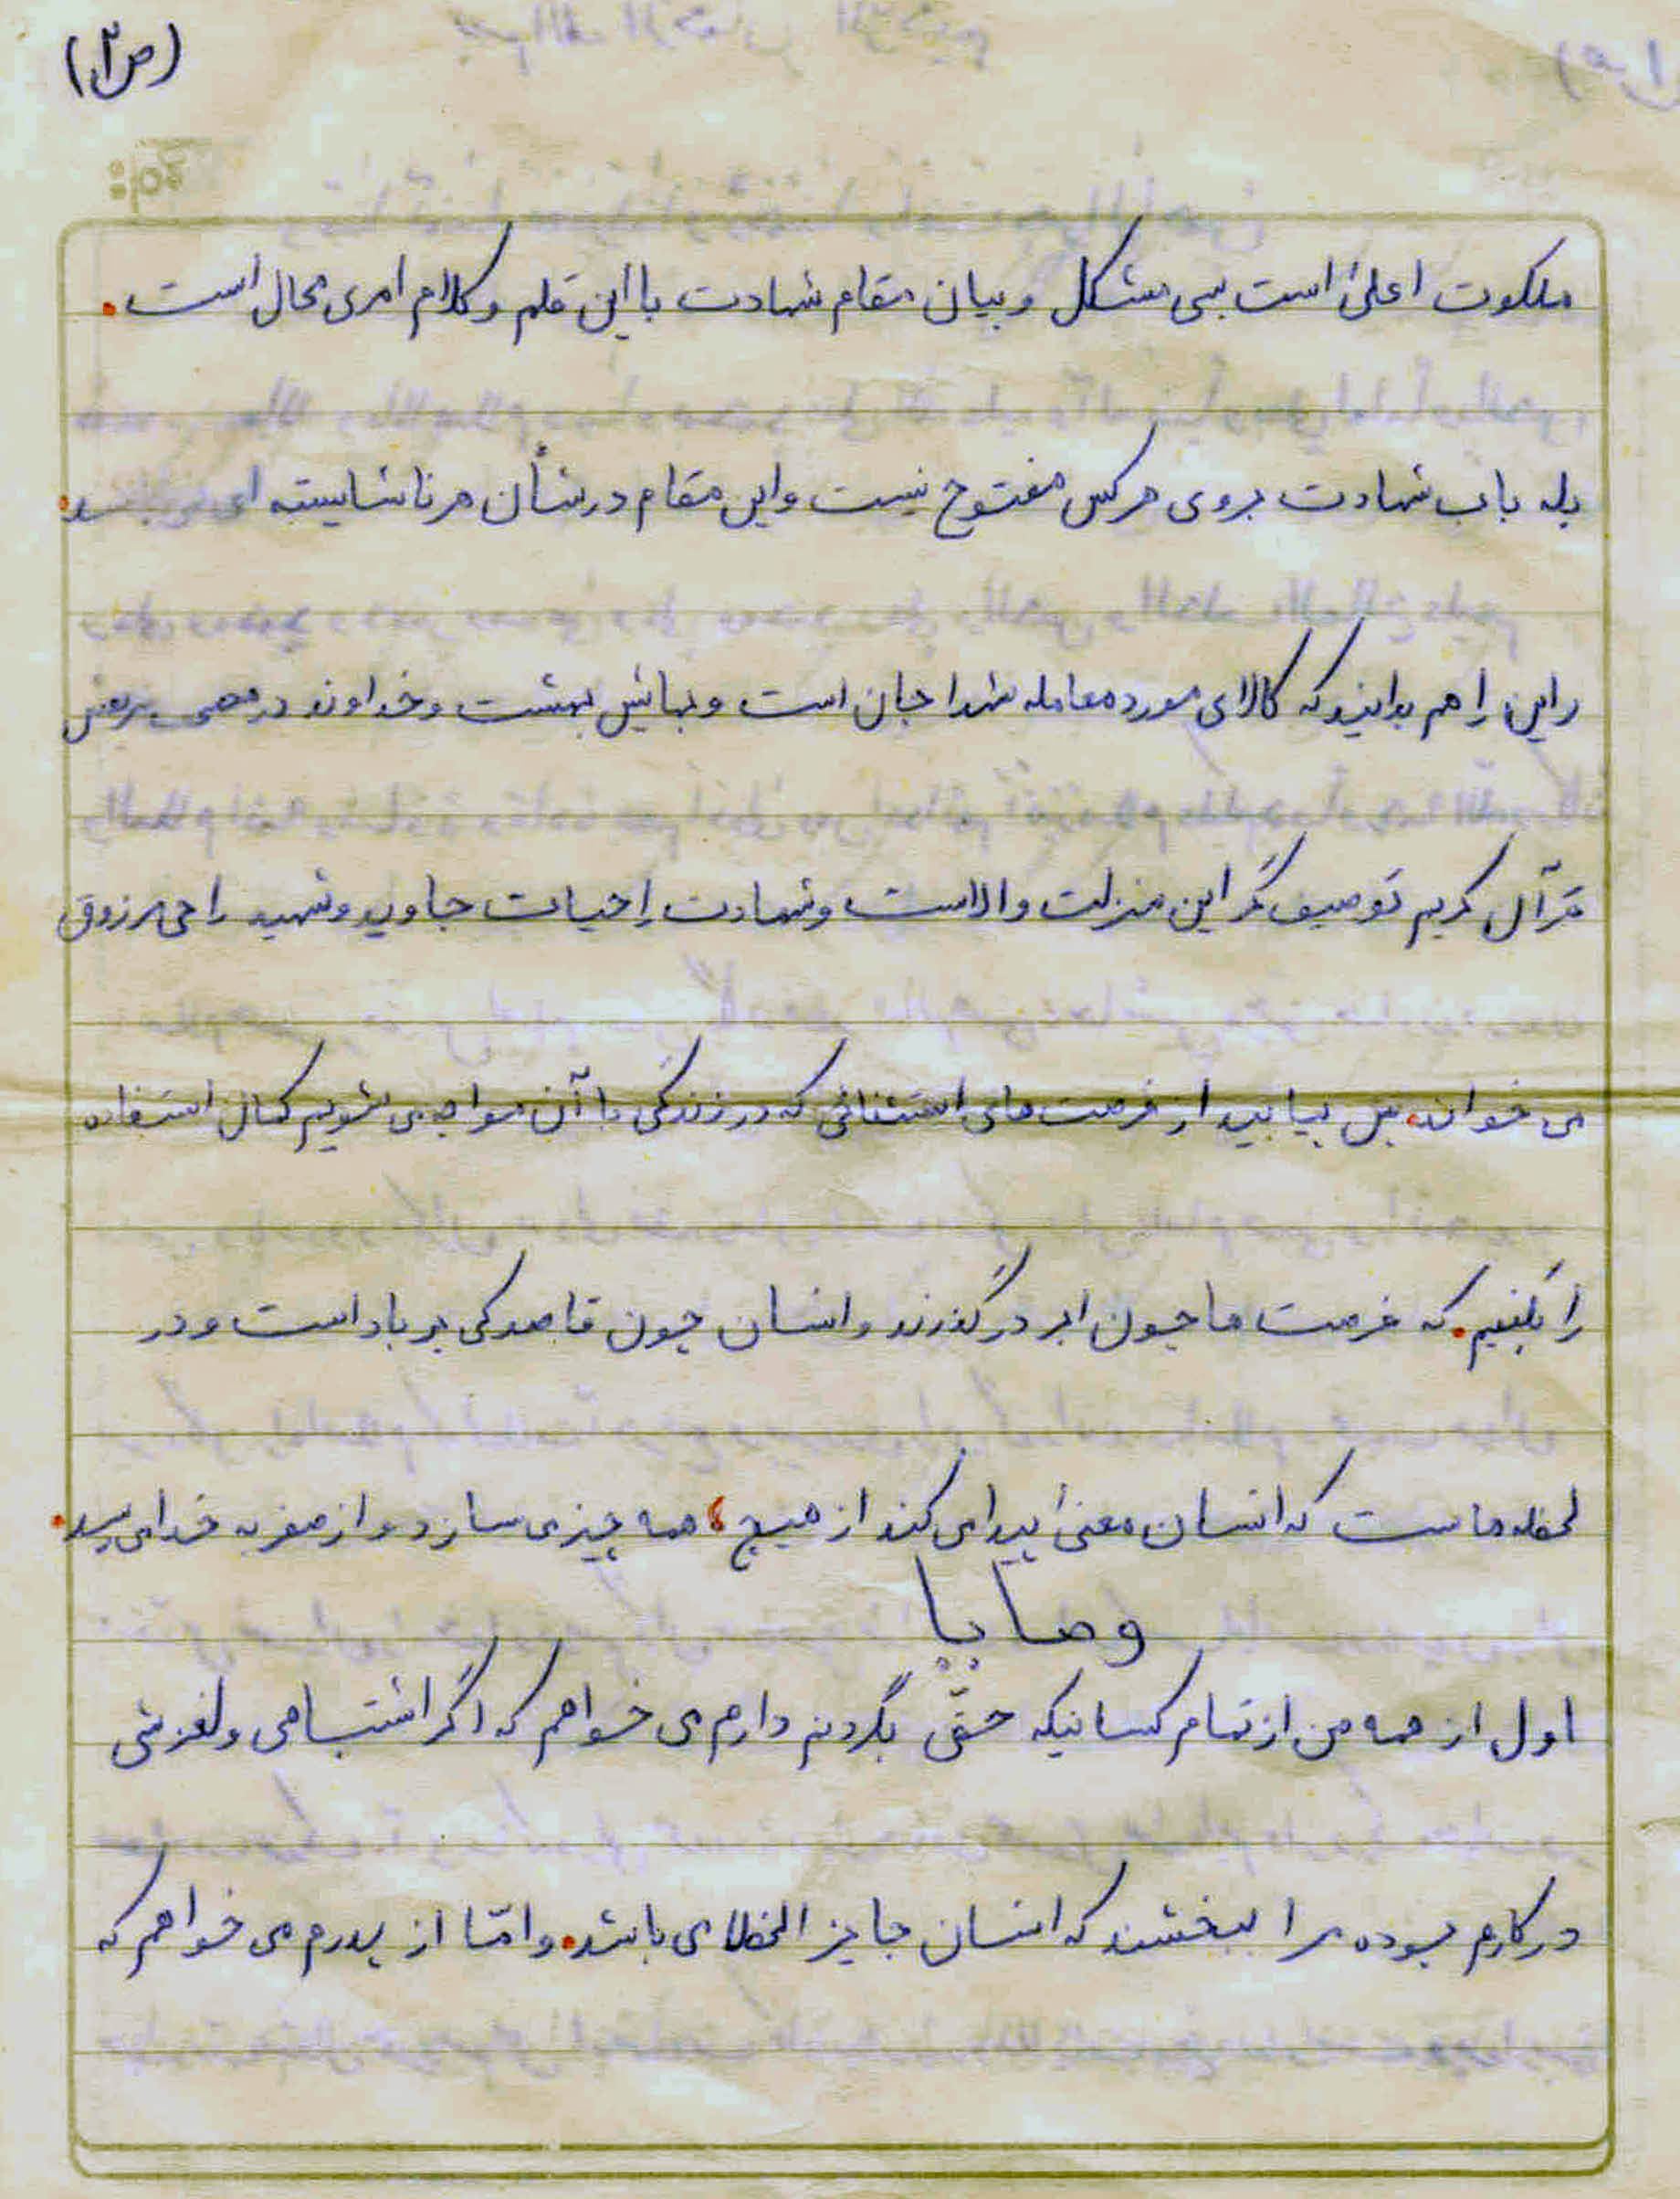 (ص۲)
ملکوت اعلیٰ است بسی مشکل و بیان مقام شهادت با این قلم و کلام امری محال است.
بله باب شهادت بروی هرکس مفتوح نیست و این مقام در شأن هر ناشایسته ای نمی باشد.
و این را هم بدانید که کالای مورد معامله شهدا جان است و بهایش بهشت و خداوند در
قرآن کریم توصیف گر این منزلت والاست و شهادت را حیات جاوید و شهید را حی مرزوق
می خواند. پس بیایید از فرصت های استثنائی که در زندگی با آن مواجه می شویم کمال استفاده
را بکنیم. که فرصت ها چون ابر در گذرند و انسان چون قاصدکی بر باد است و در
لحظه هاست که انسان معنیٰ پیدا می کند از هیچ، همه چیز می سازد و از صفر به خدا می رسد.
وصایا
اول از همه من از تمام کسانیکه حقّی بگردنم دارم می خواهم که اگر اشتباهی و لغزشی
در کارم بوده مرا ببخشند که انسان جایز الخطا می باشد. و امّا از پدرم می خواهم که